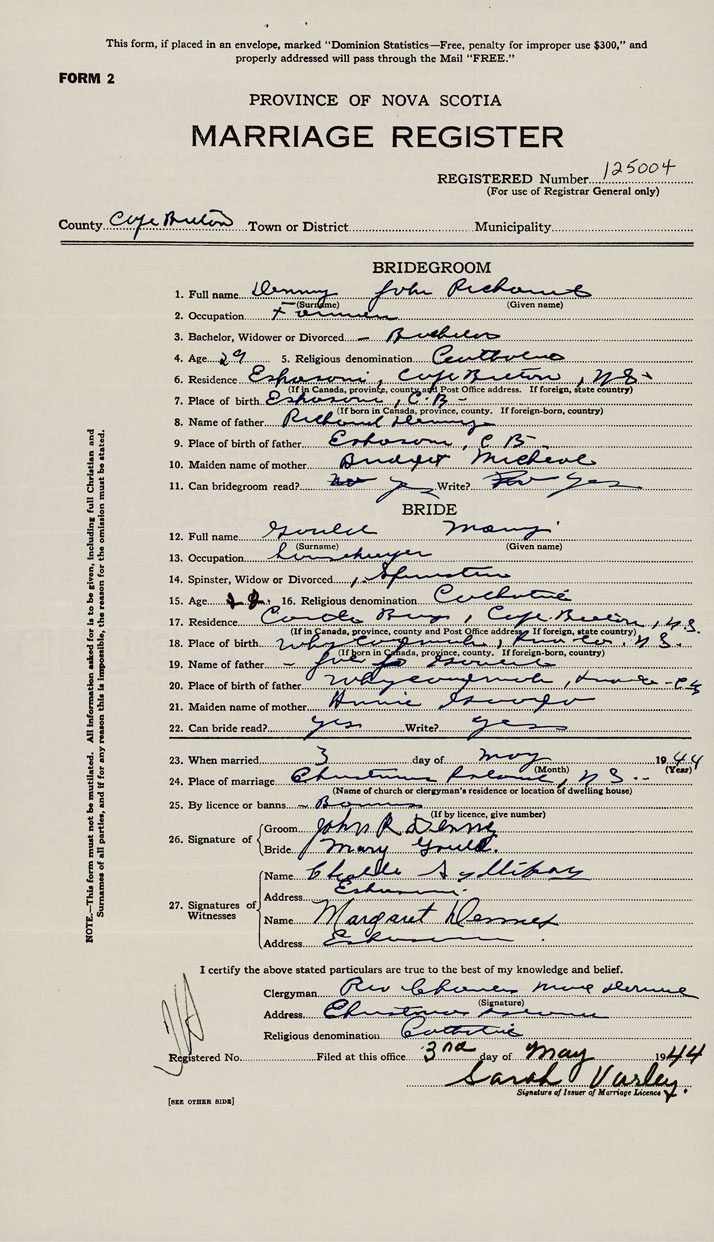 This form, if placed in an envelope, marked "Dominion Statistics—Free, penalty for improper use $300," and
properly addressed will pass through the Mail "FREE."
FORM 2
PROVINCE OF NOVA SCOTIA
MARRIAGE REGISTER
REGISTERED Number 125004
(For use of Registrar General only)
County Cape Breton Town or District Municipality
BRIDEGROOM
1. Full name Denny John Richard
(Surname) (Given name)
2. Occupation Farmer
3. Bachelor, Widower or Divorced – Bachelor
4. Age 29 5. Religious denomination Catholic
6. Residence Eskasoni, Cape Breton, N.S.
(If in Canada, province, county and Post Office address. If foreign, state country)
7. Place of birth Eskasoni, C.B –
(If born in Canada, province, county. If foreign-born, country)
8. Name of father Richard Denny
9. Place of birth of father Eskasoni, C B –
10. Maiden name of mother Bridget
11. Can bridegroom read? yes Write? yes
BRIDE
12. Full name Gould Mary
(Surname) (Given name)
13. Occupation Housekeeper
14. Spinster, Widow or Divorced Spinster
15. Age 16. Religious denomination Catholic
17. Residence Cape Breton, N.S.
(If in Canada, province, county and Post Office address. If foreign, state country)
18. Place of birth Whycocomagh, N.S.
(If born in Canada, province, county. If foreign-born, country)
19. Name of father – Joe Gould
20. Place of birth of father Whycocomagh,
21. Maiden name of mother Annie
22. Can bride read? yes Write? yes
23. When married 3 day of May 1944
(Month) (Year)
24. Place of marriage Christmas Island, N S. --
(Name of church or clergyman's residence or location of dwelling house)
25. By licence or banns – Banns
(If by licence, give number)
26. Signature of Groom John R Denny
Bride Mary Gould.
27. Signatures of Witnesses
Name
Address Eskasoni.
Name Margaret Denney
Address Eskasoni
I certify the above stated particulars are true to the best of my knowledge and belief.
Clergyman Rev Charles
(Signature)
Address Christmas Island
Religious denomination Catholic
Registered No. Filed at this office 3rd day of May 1944
Sarah Varley
Signature of Issuer of Marriage Licence
[SEE OTHER SIDE]
NOTE.—This form must not be mutilated. All information asked for is to be given, including full Christian and
Surnames of all parties, and if for any reason this is impossible, the reason for the omission must be stated.